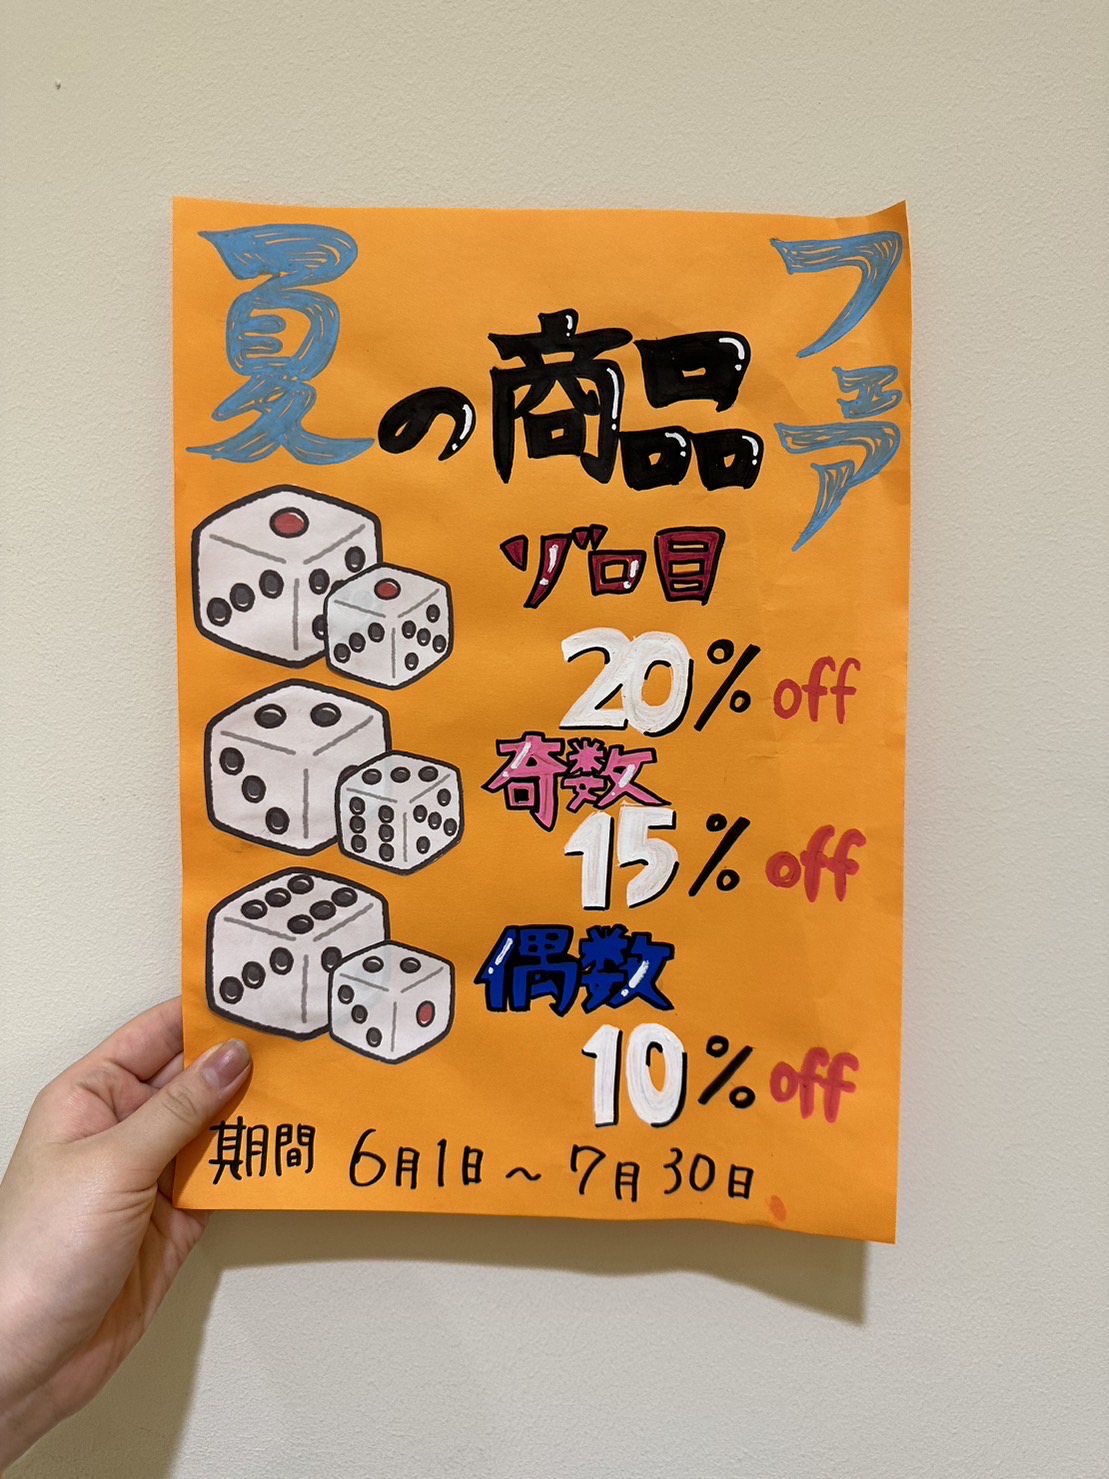 夏の商品フェア
ゾロ目
20%off
奇数
15%off
偶数
10%off
期間 6月1日～7月30日